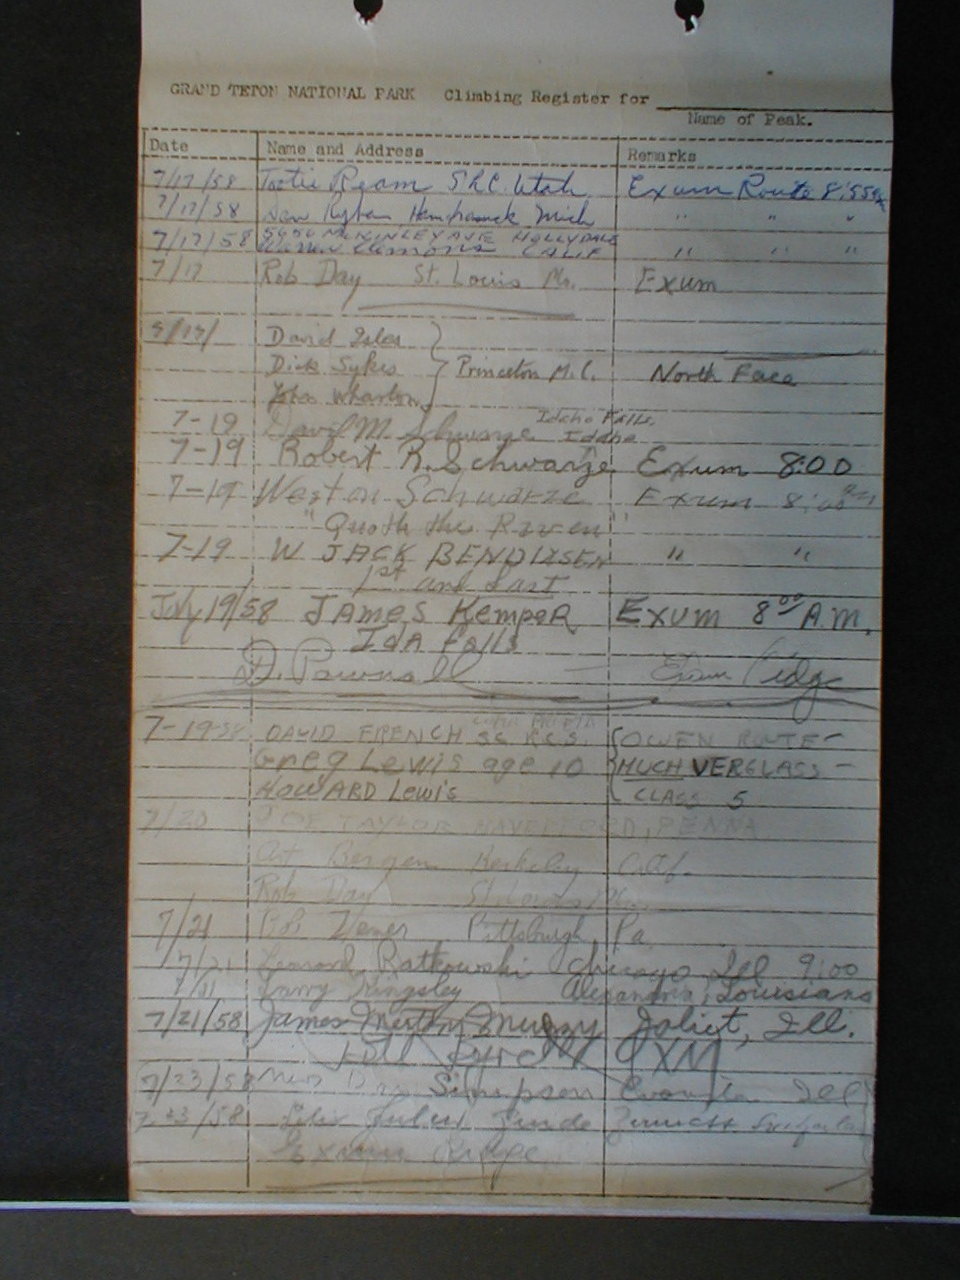 GRAND TETON NATIONAL PARK Climbing Register for
Name of Peak.
Date Name and Address Remarks
7/17/58 Tootie Ream SLC Utah Exum Route 8:55
7/17/58 Mich " " "
7/17/58 5650 McKINLEY AVE HOLLYDALE
CALIF " " "
7/17 Rob Day St. Louis Mo. Exum
David Isles
Dick Sykes Princeton M.C. North Face
John Wharton
7-19 David M. Schwarze Idaho Falls,
Idaho
7-19 Robert R. Schwarze Exum 8:00
7-19 Weston Schwarze Exum 8:00
"Quoth the Raven"
7-19 W JACK BENDIXSEN " "
1st and Last
July 19/58 JAMES KEMPER EXUM 8:00 A.M.
Ida Falls
D. Pownall Exum Ridge
7-19-58 DAVID FRENCH SC RCS. OWEN ROUTE-
Greg Lewis age 10 MUCH VERGLASS-
HOWARD Lewis CLASS 5
7/20 JOE TAYLOR HAVERFORD, PENNA
Art Bergen Berkeley Calif.
Rob Day St. Louis Mo.
7/21 Bob Pittsburgh, Pa.
7/21 Leonard Ratkowski Chicago Ill 9:00
7/21 Larry Kingsley Alexandria, Louisiana
7/21/58 James Merton Murray Joliet, Ill.
EXM
7/23/58 Simpson Evanston Ill
7/23/58
Exum Ridge